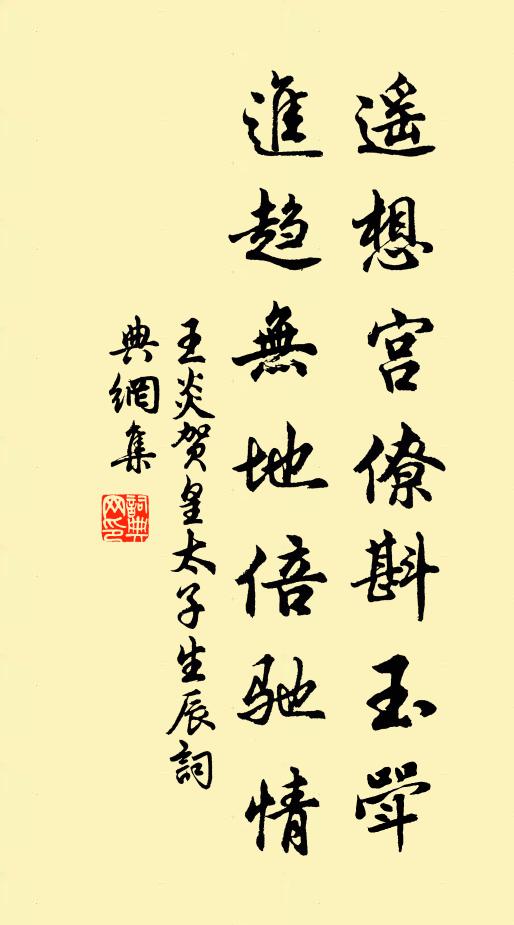 遥想宫僚斟玉斝
進趋無地倍驰情
王炎贺皇太子生辰詞
典網集
詞典網印